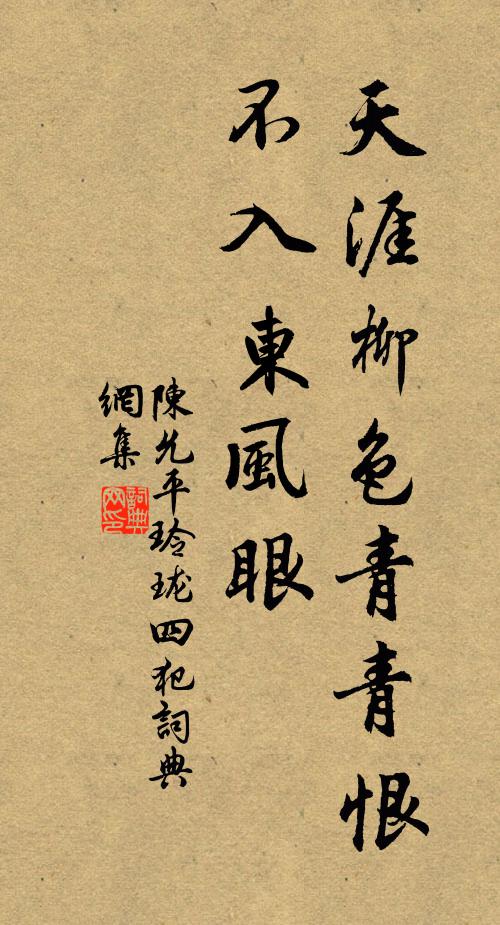 天涯柳色青青恨
不入東風眼
陳允平玲瓏四犯詞典
網集
詞典网印